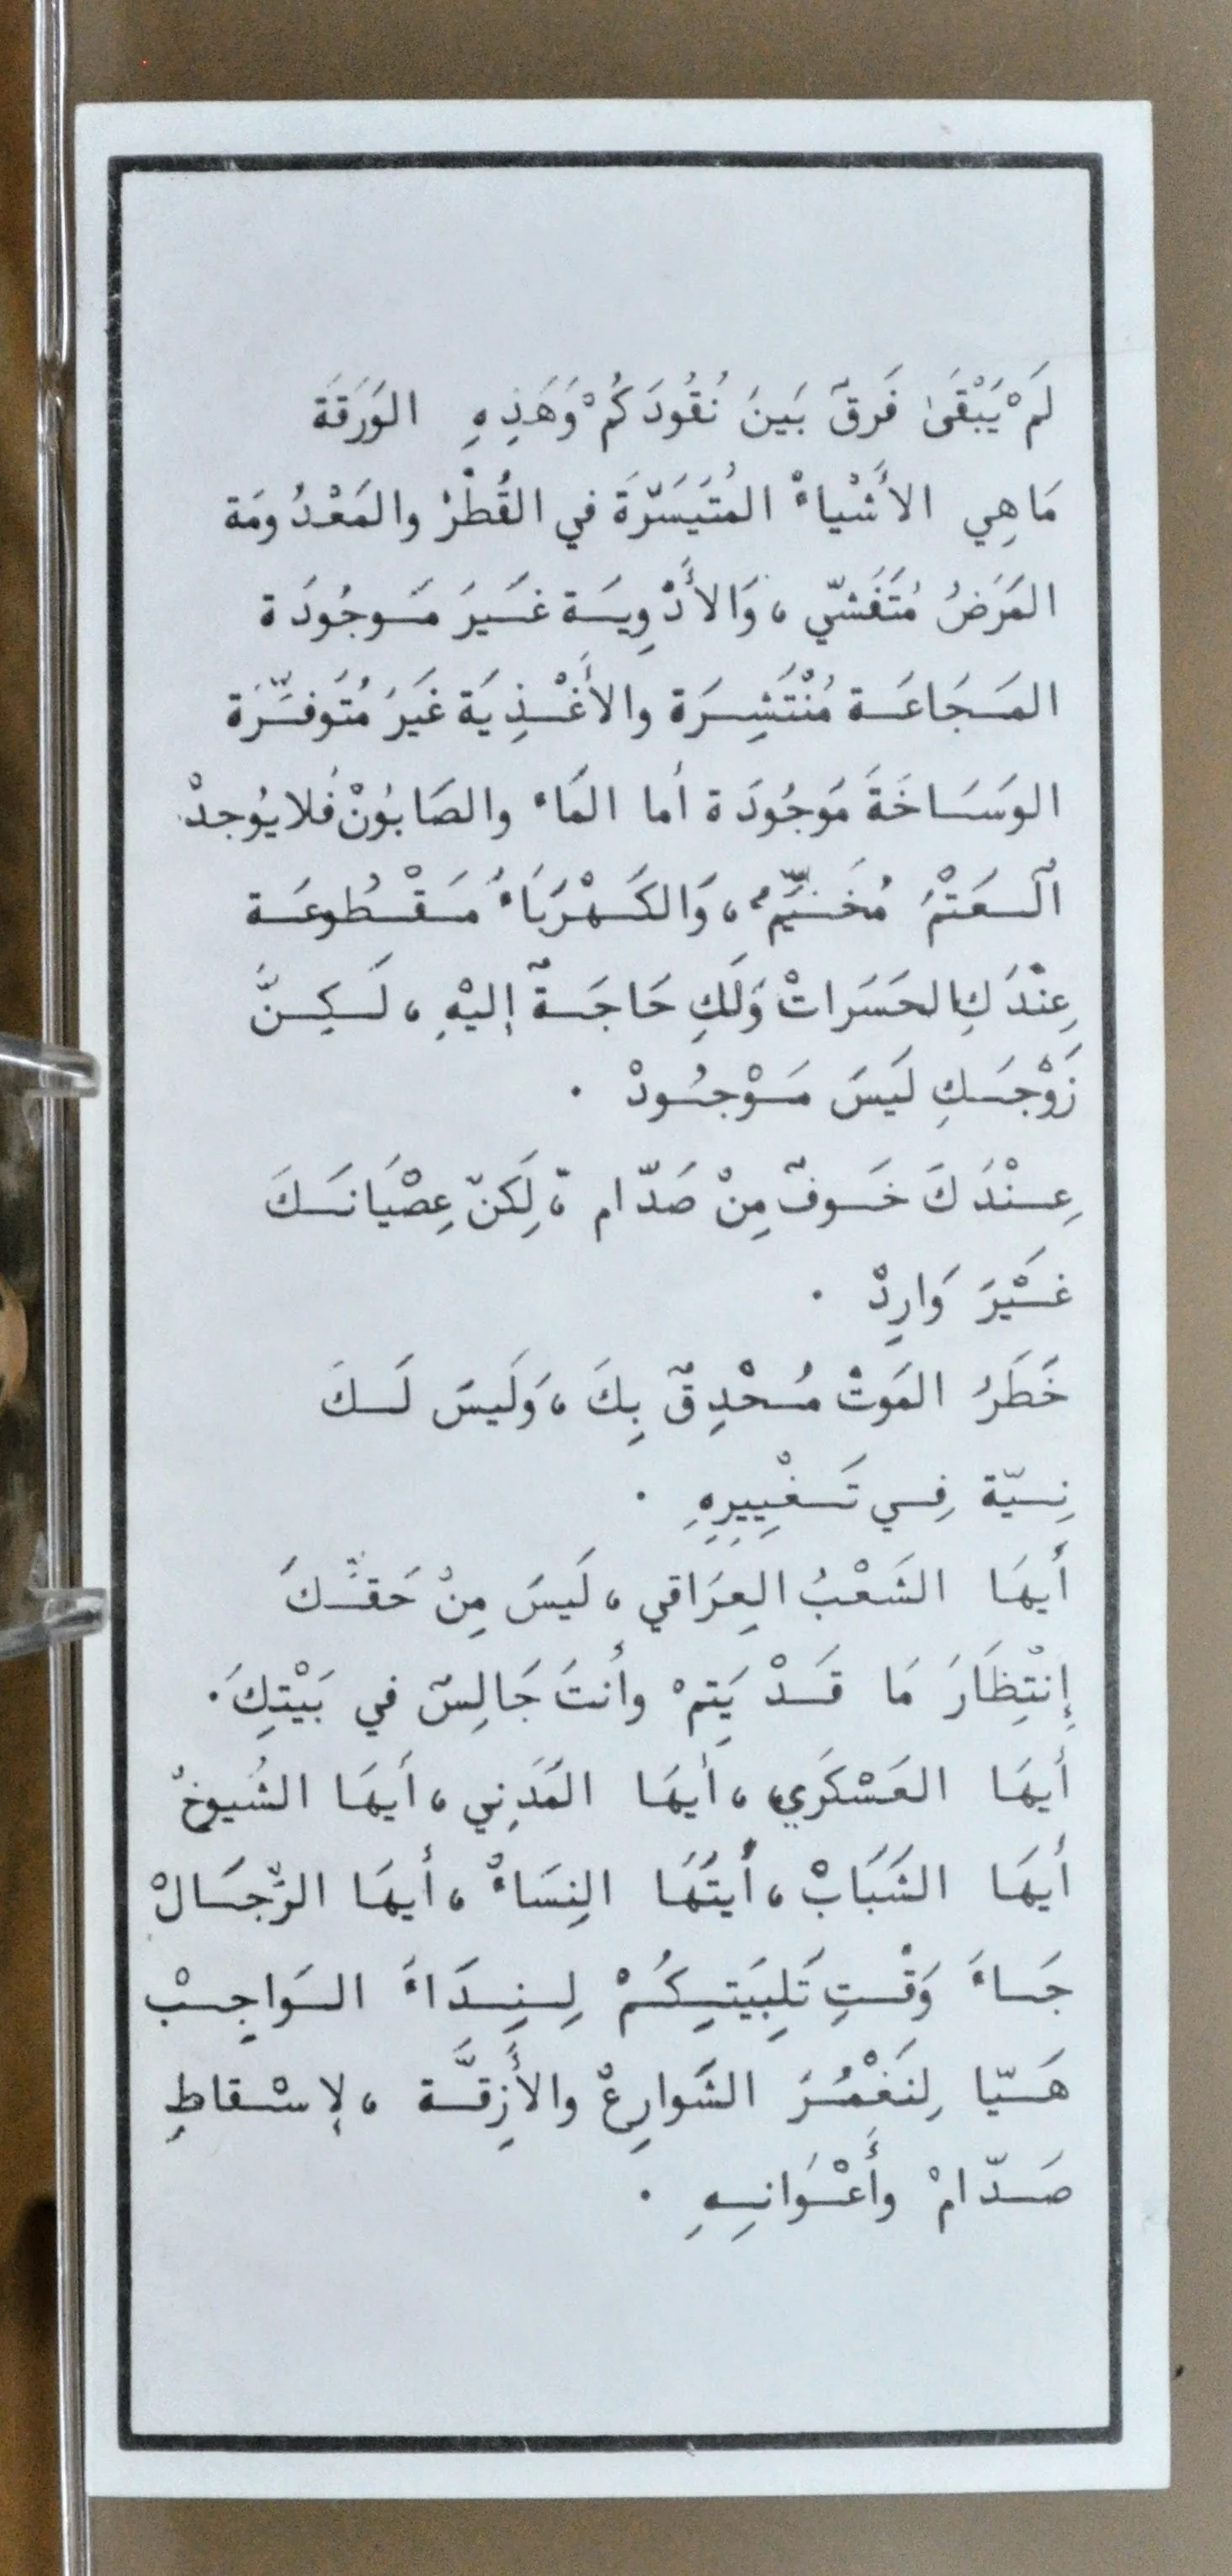 لَمْ يَبْقَىٰ فَرقٌ بَينَ نُقُودَكُمْ وَهَذِهِ الوَرَقَةَ
مَاهِي الأَشْياءْ المُتَيَسَّرَةَ في القُطْرْ والمَعْدُومَة
المَرَضُ مُتَفَشّي ، وَالأَدْوِيَة غَيرَ مَوجُودَة
المَجَاعَة مُنْتَشِرَة والأَغْذِيَة غَيَرُ مُتَوفِّرَة
الوَسَاخَةَ مَوجُودَة أما المَاء والصَابُوْن فَلا يُوجدْ
آلعَتْمُ مُخَيِّمٌ ، وَالكَهْرَبَاءُ مَقْطُوعَة
عِنْدَكِ الحَسَرَاتْ وَلَكِ حَاجَةٌ إليْهِ ، لَكِنَّ
زَوْجَكِ لَيسَ مَوْجُودْ .
عِنْدَكَ خَوفٌ مِنْ صَدّام ، لَكِنّ عِصْيَانَكَ
غَيْرَ وَارِدْ .
خَطَرُ المَوتْ مُحْدِقٌ بِكَ ، وَلَيسَ لَكَ
نِيّة فِي تَغْيِيرِهِ .
أيهَا الشَعْبُ العِرَاقي ، لَيسَ مِنْ حَقِّكَ
إِنْتِظَارَ مَا قَدْ يَتِمْ وأنتَ جَالِسٌ في بَيْتِكَ .
أيهَا العَسْكَري ، أيهَا المَدَنِي ، أيهَا الشُيوخْ
أيهَا الشَبَابْ ، أيتَهَا النِسَاءْ ، أيهَا الرِّجَالْ
جَاءَ وَقْتِ تَلِبيَتِكُمْ لِنِدَاءَ الوَاجِبْ
هَيّا لِنَغْمُرَ الشَوارِعْ والأَزِقَّة ، لإسْقاطِ
صَدّامْ وأَعْوَانِهِ .